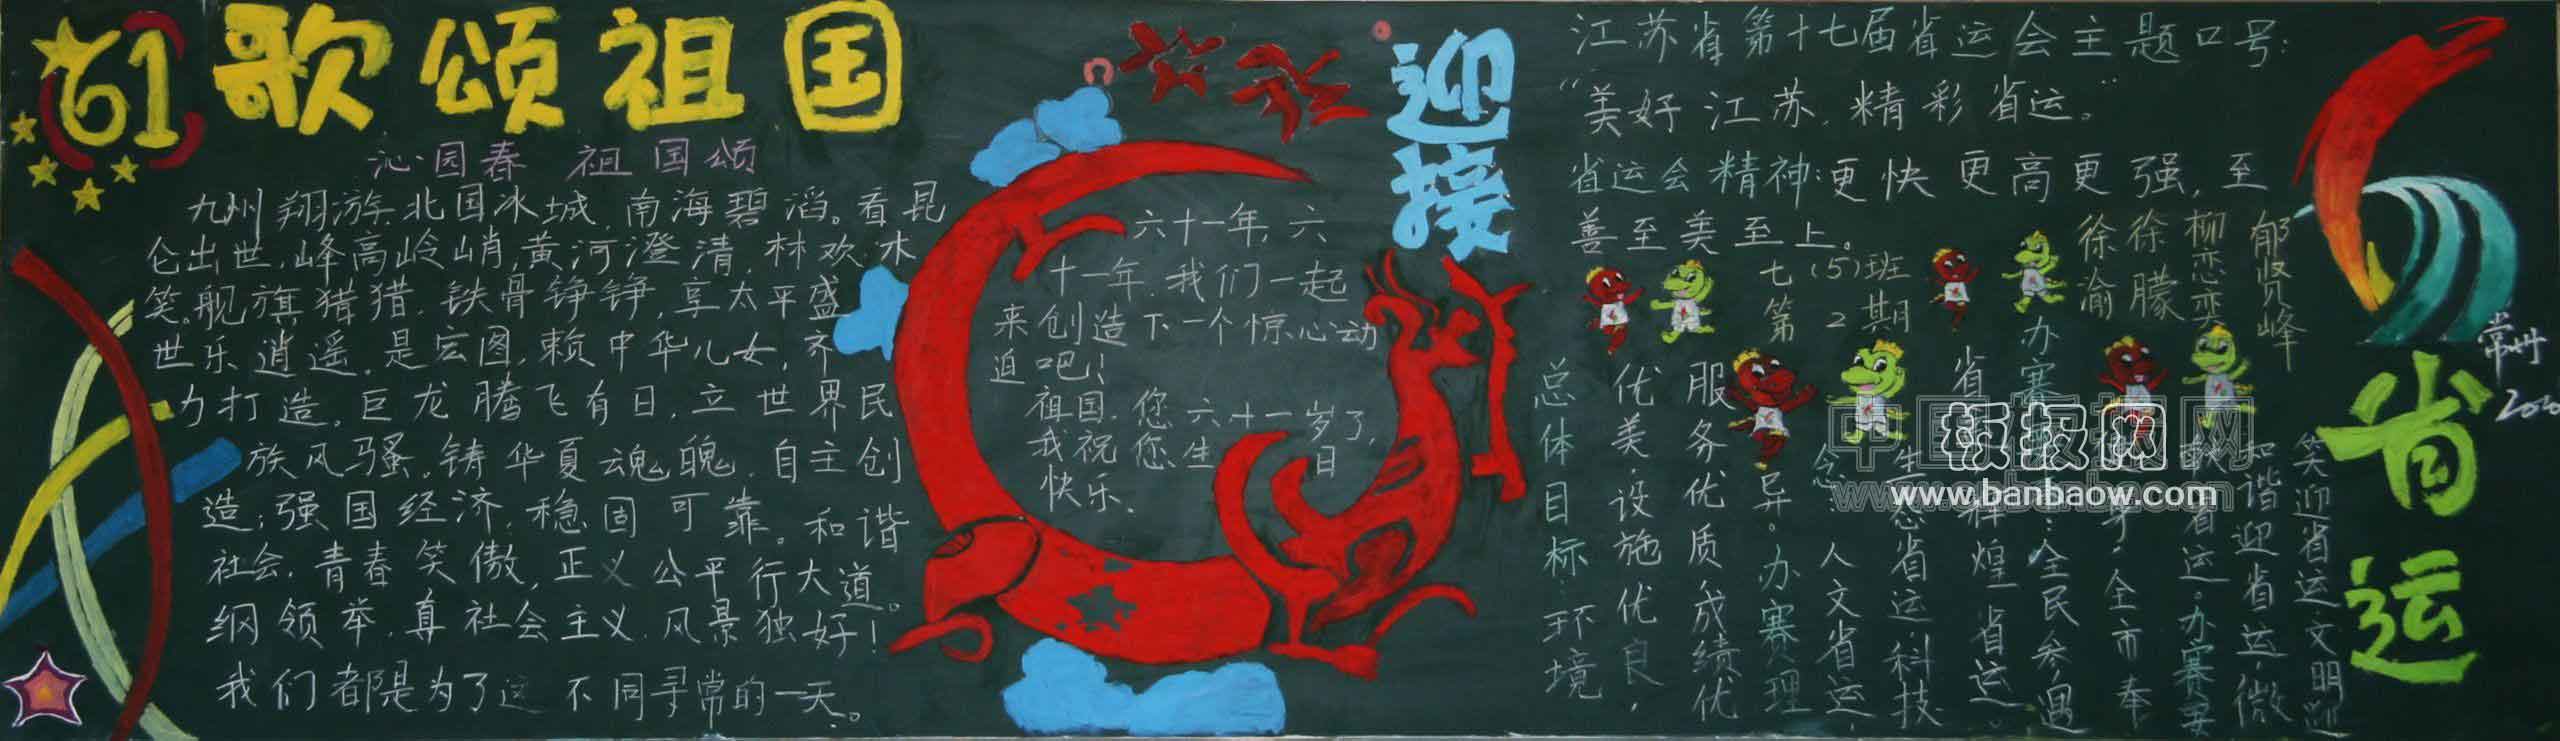 61
歌颂祖国
沁园春 祖国颂
九州翔游,北国冰城,南海碧滔。看昆
仑出世,峰高岭峭,黄河澄清,林欢木
笑。舰旗猎猎,铁骨铮铮,享太平盛
世乐逍遥,是宏图,赖中华儿女,齐
力打造。巨龙腾飞有日,立世界民
族风骚。铸华夏魂魄,自主创
造;强国经济,稳固可靠。和谐
社会,青春笑傲,正义公平行大道。
纲领举,真社会主义,风景独好!
我们都是为了这不同寻常的一天。
六十一年,六
十一年,我们一起
来创造下一个惊心动
迫吧!
祖国,您六十一岁了,
我祝您生日
快乐.
迎接
江苏省第十七届省运会主题口号:
“美好江苏,精彩省运。”
省运会精神:更快更高更强,至
善至美至上。
七(5)班
第2期
徐渝
徐朦
柳恋奕
郁贤峰
总体目标:环境
优美,设施优良,
服务优质,成绩优
异。办赛理
念:人文省运,
生态省运,科技
省运,辉煌省运。
全民参与
全市奉
省运。办赛
和谐迎省运,微
笑迎省运,文明迎
常州
2010
省运
中国板报网
www.banbaow.com